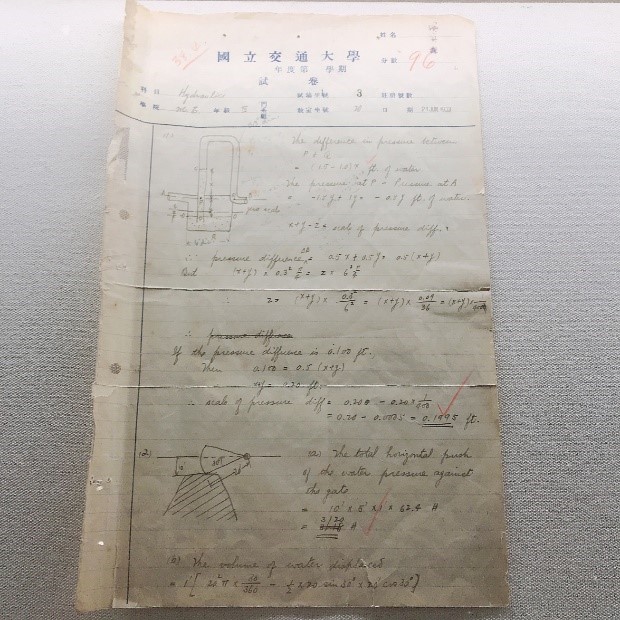 姓名
國立交通大學
年度第 學期
分數 96
試卷
科目 Hydraulics
3
學院 年級
日期
(1)
The difference in pressure between
= (1.5 - 1.0)x ft. of water
The pressure at P - Pressure at A
= -1.5y + 1y = - 0.5y ft. of water.
x+y-z = scale of pressure diff.
∴ pressure difference = 0.5x + 0.5y = 0.5(x+y)
But (x+y) × 0.3² = z × 6²
∴ z = (x+y) × 0.3²/6² = (x+y) × 0.09/36 = (x+y) × 1/400
∴ pressure diffnce
If the pressure diffrence is 0.100 ft.
Then 0.100 = 0.5 (x+y)
x+y = 0.20 ft.
∴ scale of pressure diff = 0.200 - 0.20 × 1/400
= 0.20 - 0.0005 = 0.1995 ft.
(2)
10'
30°
20'
(a) The total horizontal push
of the water pressure against
the gate
= 10' × 5' × 1 × 62.4 #
= 3120 #
(b) The volume of water displaced
= 1' [ 20² π × 30/360 - 1/2 × 20 sin 30° × 20 cos 30° ]